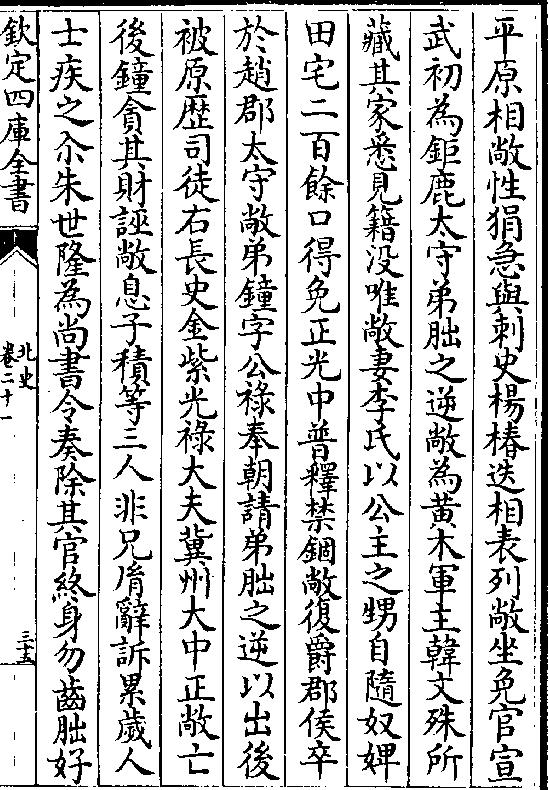 平原相敞性狷急與刺史楊椿迭相表列敞坐免官宣
武初為鉅鹿太守弟朏之逆敞為黃木軍主韓文殊所
藏其家悉見籍没唯敞妻李氏以公主之甥自隨奴婢
田宅二百餘口得免正光中普釋禁錮敞復爵郡侯卒
於趙郡太守敞弟鐘字公祿奉朝請弟朏之逆以出後
被原歴司徒右長史金紫光祿大夫冀州大中正敞亡
後鐘貪其財誣敞息子積等三人非兄𦙍辭訴累歲人
士疾之尒朱世隆為尚書令奏除其官終身勿齒朏好
欽定四庫全書
北史
卷二十一
三十五